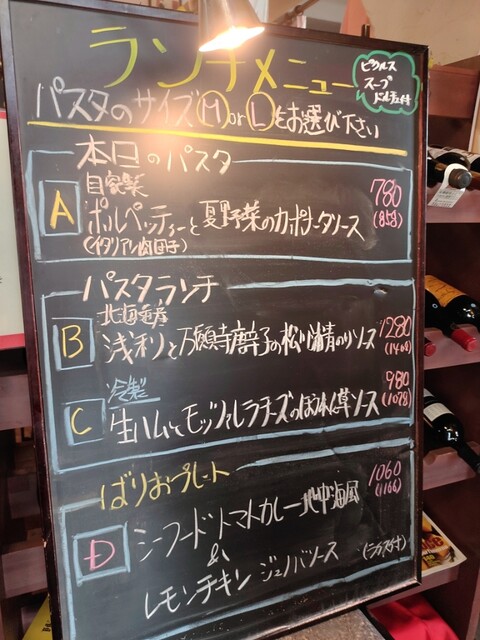 ランチメニュー
ピクルス
スープ
ドルチェ付
パスタのサイズ M or L をお選び下さい
本日のパスタ
A
自家製
ポルペッティーと夏野菜のカポナータソース
(イタリアン肉団子)
780
(858)
パスタランチ
B
北海道産
浅利と万願寺唐辛子の松川浦青のりソース
1280
(1408)
C
冷製
生ハムとモッツァレラチーズのほうれん草ソース
980
(1078)
ばりおプレート
D
シーフードトマトカレー地中海風
&
レモンチキン ジェノバソース
1060
(1166)